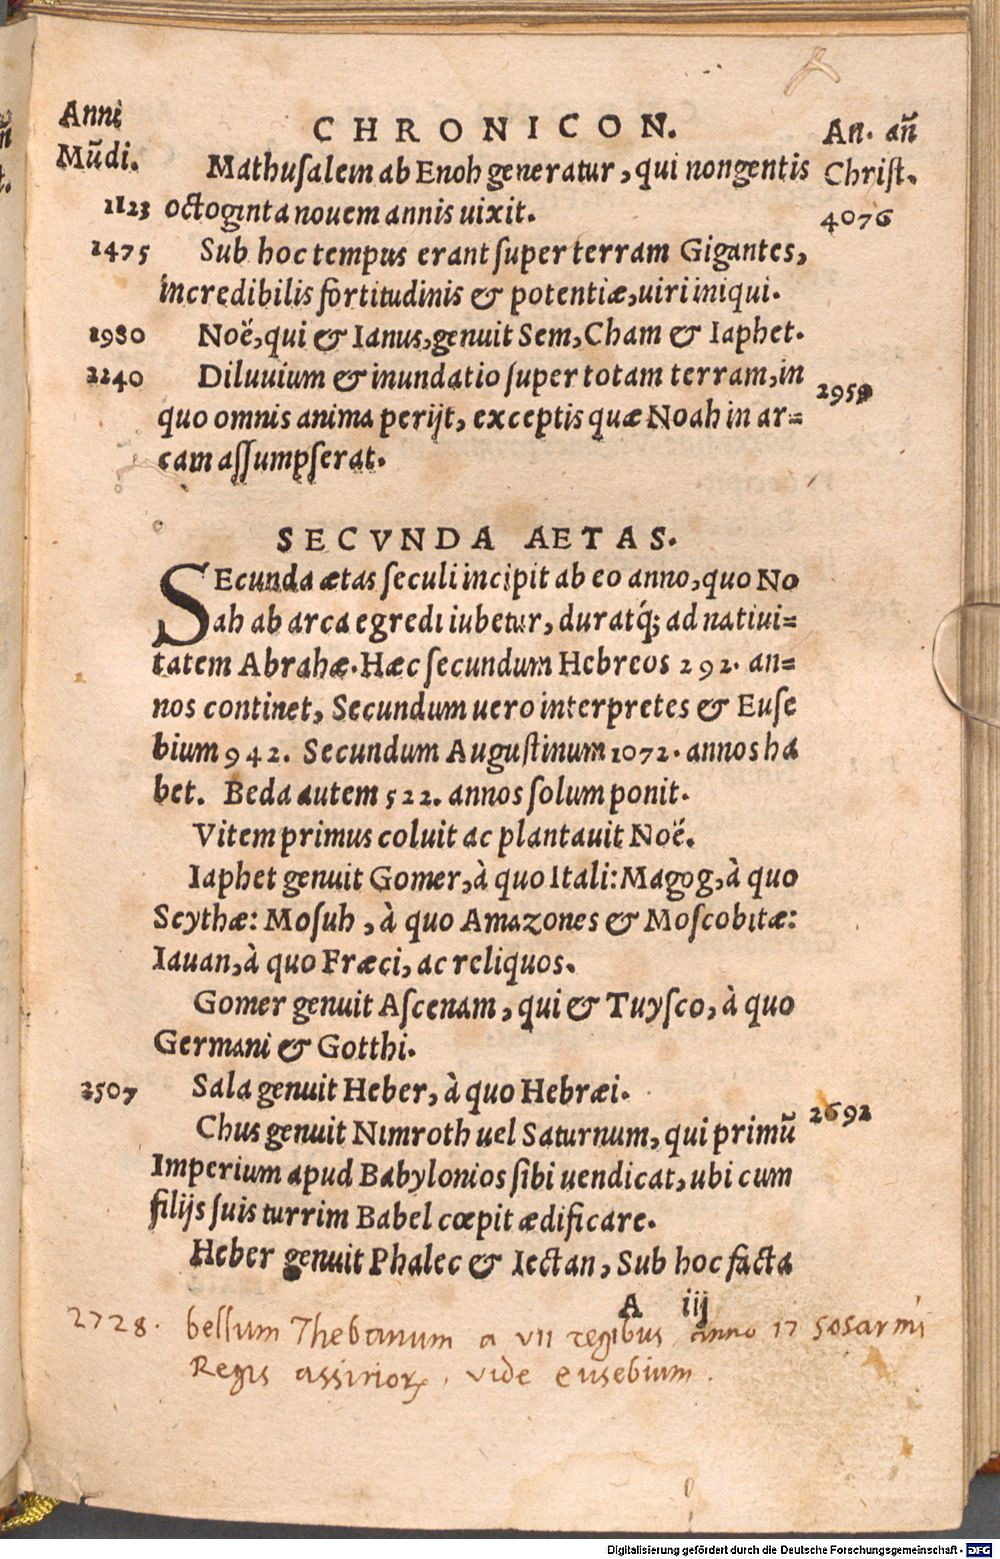 Anni
Mũdi.
CHRONICON.
An. añ
Christ.
Mathuſalem ab Enoh generatur, qui nongentis
1123 octoginta nouem annis uixit. 4076
1475 Sub hoc tempus erant ſuper terram Gigantes,
incredibilis fortitudinis & potentiæ, uiri iniqui.
1980 Noë, qui & Ianus, genuit Sem, Cham & Iaphet.
2240 Diluuium & inundatio ſuper totam terram, in 2959
quo omnis anima perijt, exceptis quæ Noah in ar=
cam aſſumpſerat.
SECVNDA AETAS.
SEcunda ætas ſeculi incipit ab eo anno, quo No
ah ab arca egredi iubetur, duratq́; ad natiui=
tatem Abrahæ. Hæc ſecundum Hebreos 292. an=
nos continet, Secundum uero interpretes & Euſe
bium 942. Secundum Auguſtinum 1072. annos ha
bet. Beda autem 522. annos ſolum ponit.
Vitem primus coluit ac plantauit Noë.
Iaphet genuit Gomer, à quo Itali: Magog, à quo
Scythæ: Moſuh, à quo Amazones & Moſcobitæ:
Iauan, à quo Fræci, ac reliquos.
Gomer genuit Aſcenam, qui & Tuyſco, à quo
Germani & Gotthi.
2507 Sala genuit Heber, à quo Hebræi.
Chus genuit Nimroth uel Saturnum, qui primũ 2692
Imperium apud Babylonios ſibi uendicat, ubi cum
filijs ſuis turrim Babel cœpit ædificare.
Heber genuit Phalec & Iectan, Sub hoc facta
A iij
2728. bellum Thebanum a VII regibus anno 17 sosarmi
Regis assirioꝝ, vide eusebium.
Digitalisierung gefördert durch die Deutsche Forschungsgemeinschaft - DFG